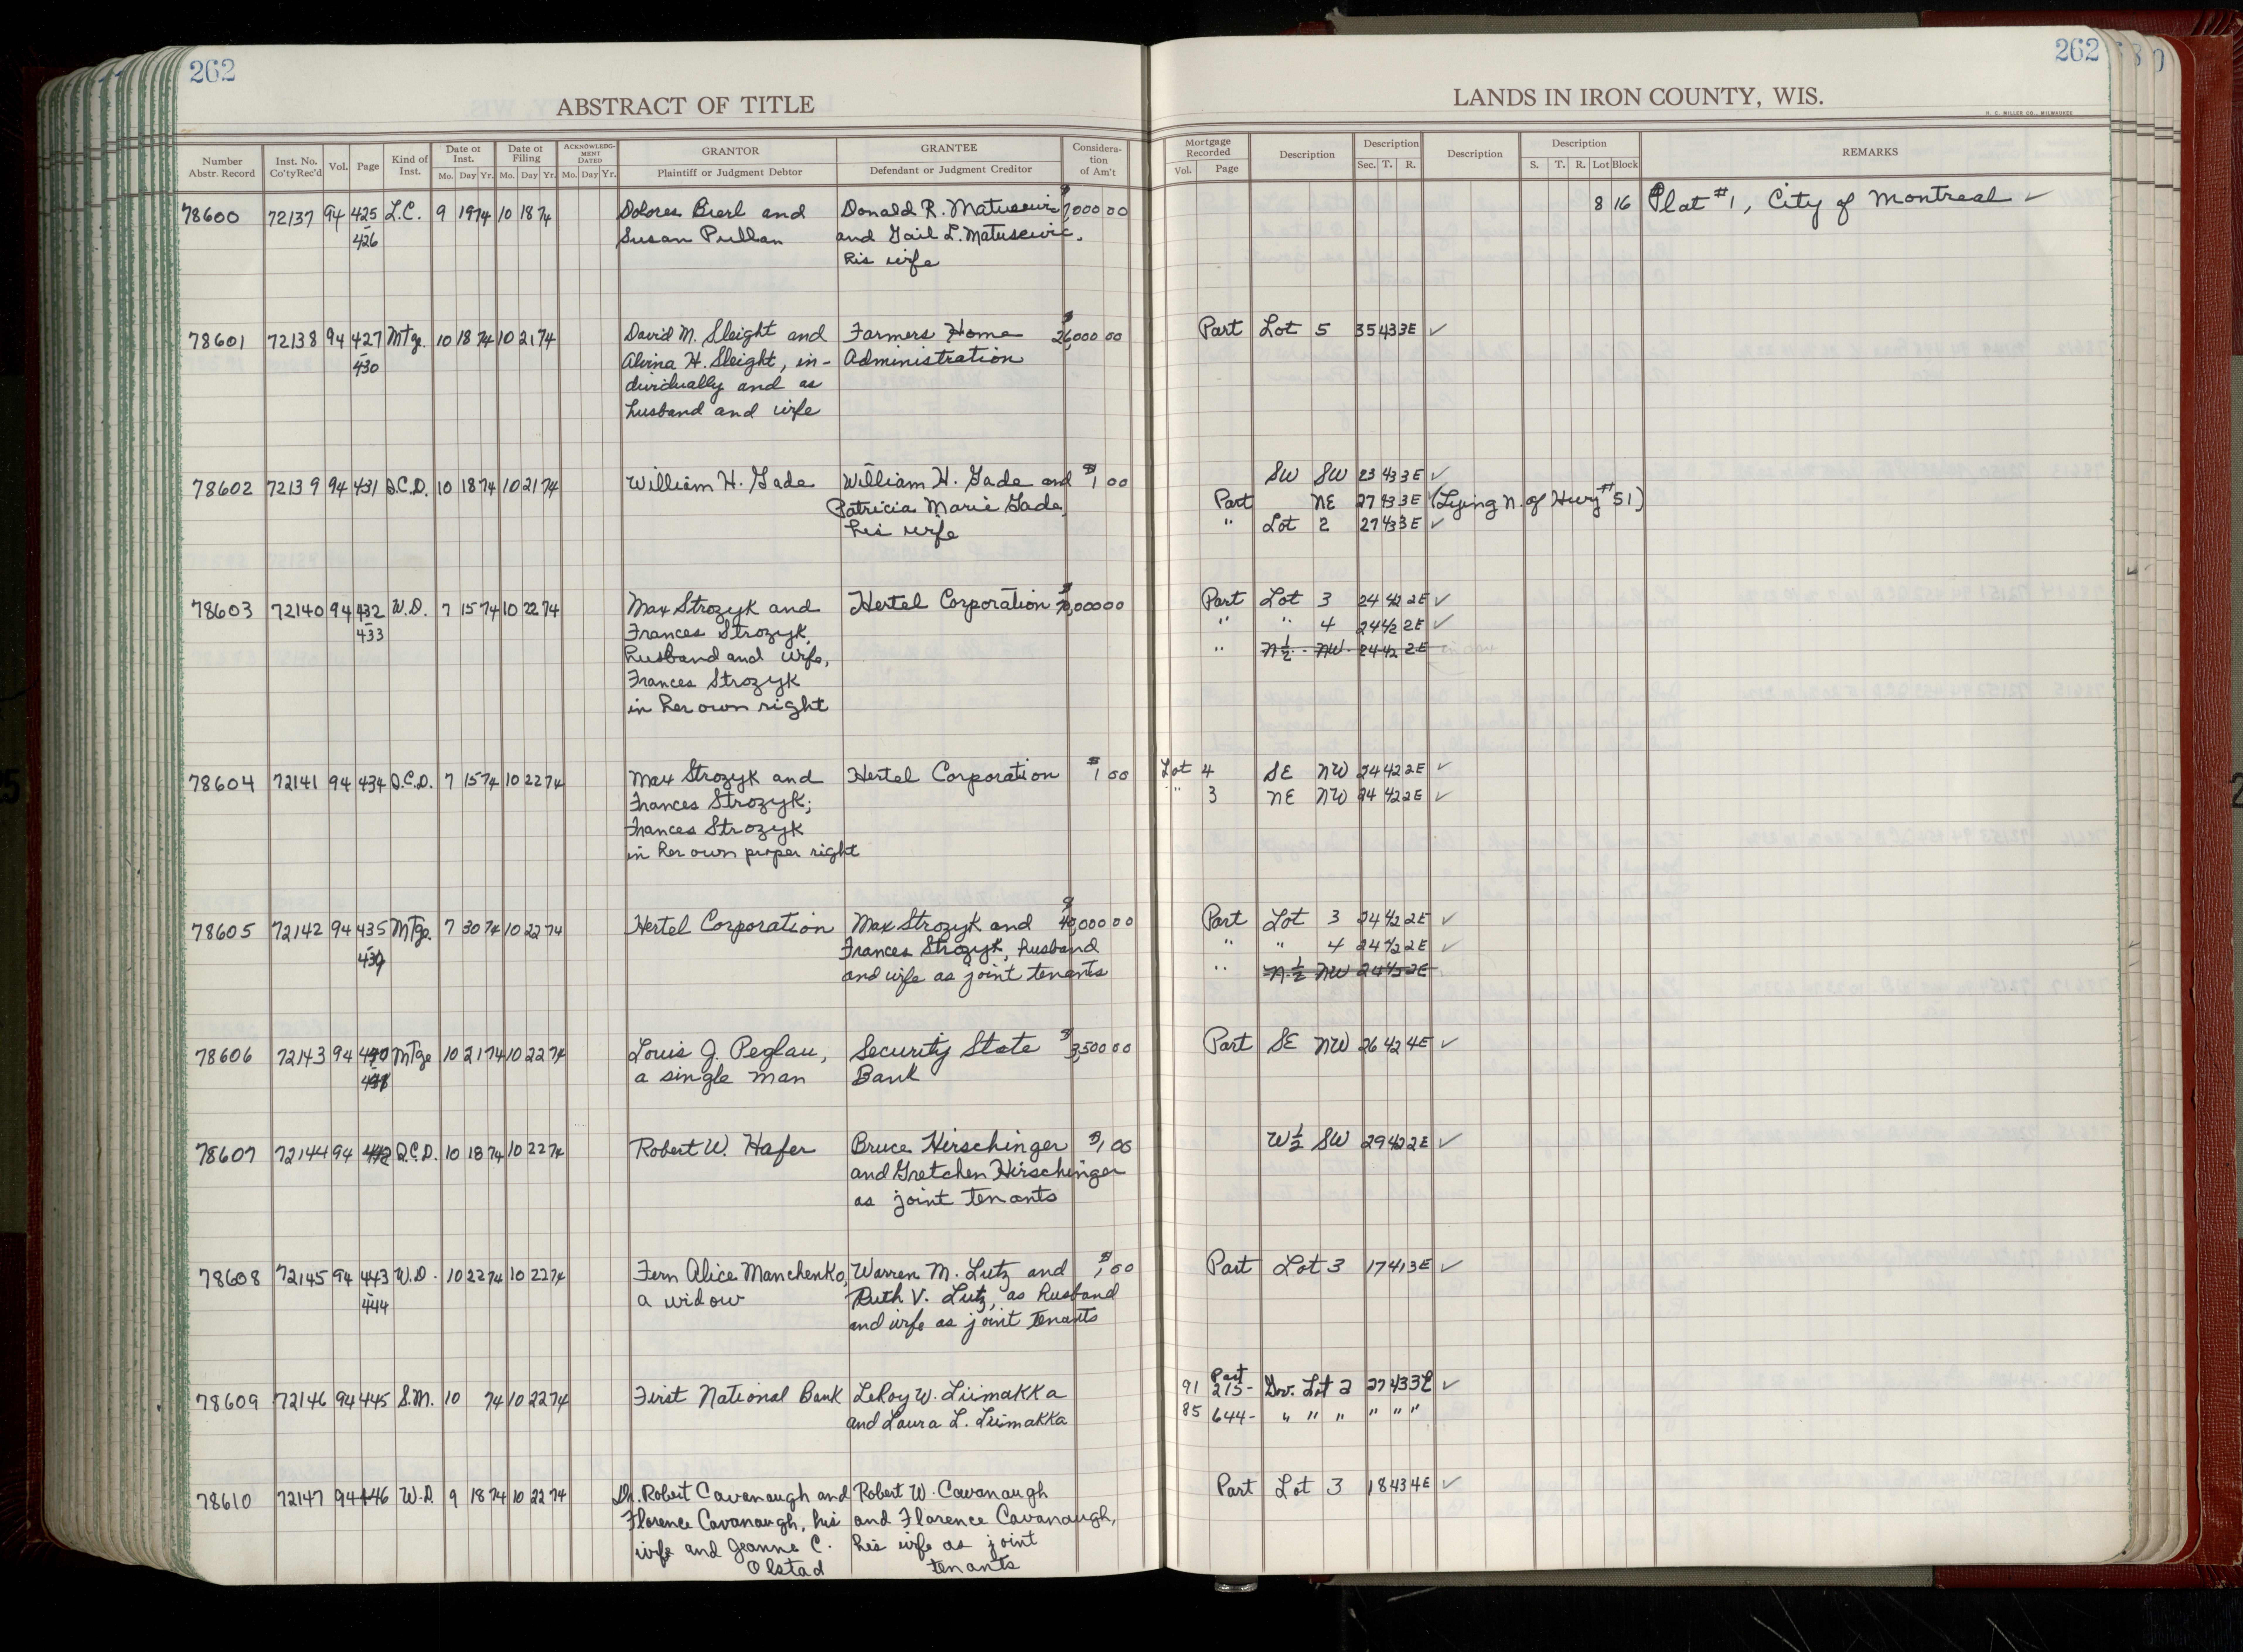 262
ABSTRACT OF TITLE
Number Abstr. Record | Inst. No. Co'tyRec'd | Vol. | Page | Kind of Inst. | Date of Inst. Mo. Day Yr. | Date of Filing Mo. Day Yr. | ACKNOWLEDGMENT DATED Mo. Day Yr. | GRANTOR Plaintiff or Judgment Debtor | GRANTEE Defendant or Judgment Creditor | Consideration of Am't
78600 72137 94 425 L.C. 9 19 74 10 18 74 Dolores Bierl and Donald R. Matusewic $7,000 00
- 426 Susan Pullan and Gail L. Matusewic,
his wife
78601 72138 94 427 Mtge. 10 18 74 10 21 74 David M. Sleight and Farmers Home $26,000 00
- 430 Alvina H. Sleight, in- Administration
dividually and as
husband and wife
78602 72139 94 431 Q.C.D. 10 18 74 10 21 74 William H. Gade William H. Gade and $1 00
Patricia Marie Gade,
his wife
78603 72140 94 432 W.D. 7 15 74 10 22 74 Max Strozyk and Hertel Corporation $70,000 00
- 433 Frances Strozyk,
husband and wife,
Frances Strozyk
in her own right
78604 72141 94 434 Q.C.D. 7 15 74 10 22 74 Max Strozyk and Hertel Corporation $1 00
Frances Strozyk;
Frances Strozyk
in her own proper right
78605 72142 94 435 Mtge. 7 30 74 10 22 74 Hertel Corporation Max Strozyk and $40,000 00
- Frances Strozyk, husband
and wife as joint tenants
78606 72143 94 Mtge 10 21 74 10 22 74 Louis J. Peglau, Security State $3,500 00
a single man Bank
78607 72144 94 442 Q.C.D. 10 18 74 10 22 74 Robert W. Hafer Bruce Hirschinger $1 00
and Gretchen Hirschinger
as joint tenants
78608 72145 94 443 W.D. 10 22 74 10 22 74 Fern Alice Manchenko, Warren M. Lutz and $1 00
- 444 a widow Ruth V. Lutz, as husband
and wife as joint tenants
78609 72146 94 445 S.M. 10 74 10 22 74 First National Bank LeRoy W. Liimakka
and Laura L. Liimakka
78610 72147 94 446 W.D. 9 18 74 10 22 74 Dr. Robert Cavanaugh and Robert W. Cavanaugh
Florence Cavanaugh, his and Florence Cavanaugh,
wife and Jeanne C. his wife as joint
Olstad tenants
262
LANDS IN IRON COUNTY, WIS.
H. C. MILLER CO., MILWAUKEE
Mortgage Recorded Vol. Page | Description | Description Sec. T. R. | Description | Description S. T. R. Lot Block | REMARKS
8 16 Plat #1, City of Montreal ✓
Part Lot 5 35 43 3E ✓
SW SW 23 43 3E ✓
Part NE 27 43 3E ✓ (Lying N. of Hwy #51)
" Lot 2 27 43 3E ✓
Part Lot 3 24 42 2E ✓
" " 4 24 42 2E ✓
" N½ NW 24 42 2E
Lot 4 SE NW 24 42 2E ✓
" 3 NE NW 24 42 2E ✓
Part Lot 3 24 42 2E ✓
" " 4 24 42 2E ✓
" N½ NW 24 42 2E
Part SE NW 26 42 4E ✓
W½ SW 29 42 2E ✓
Part Lot 3 17 41 3E ✓
Part
91 215- Gov. Lot 2 27 43 3E ✓
85 644- " " " " " "
Part Lot 3 18 43 4E ✓